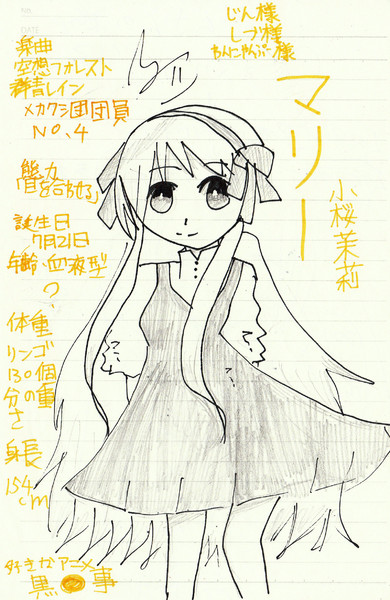 じん様
しづ様
わんにゃんぷー様
楽曲
空想フォレスト
群青レイン
メカクシ団団員
NO.4
マリー
小桜茉莉
能力
「目を合わせる」
誕生日
7月21日
年齢、血液型
?
体重
リンゴ
130個
分の重
さ
身長
154
cm
好きなアニメ
黒●事